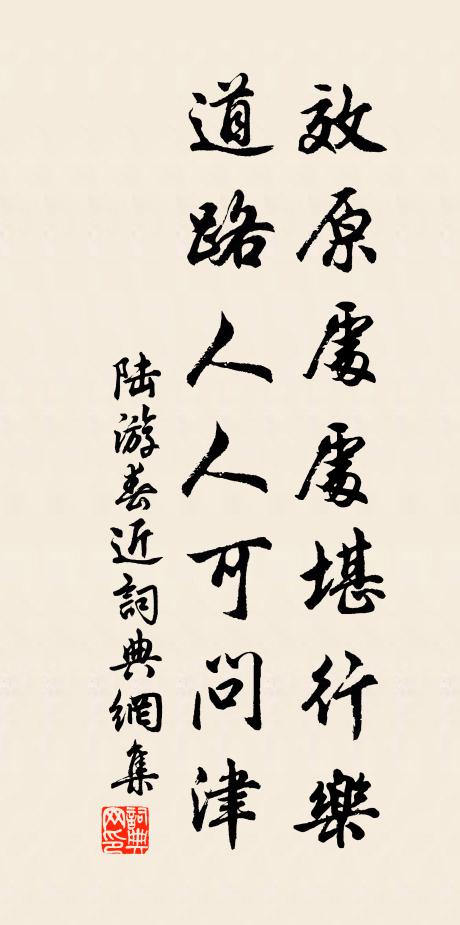 效原處處堪行樂
道路人人可問津
陆游春近詞典網集
詞典
网印